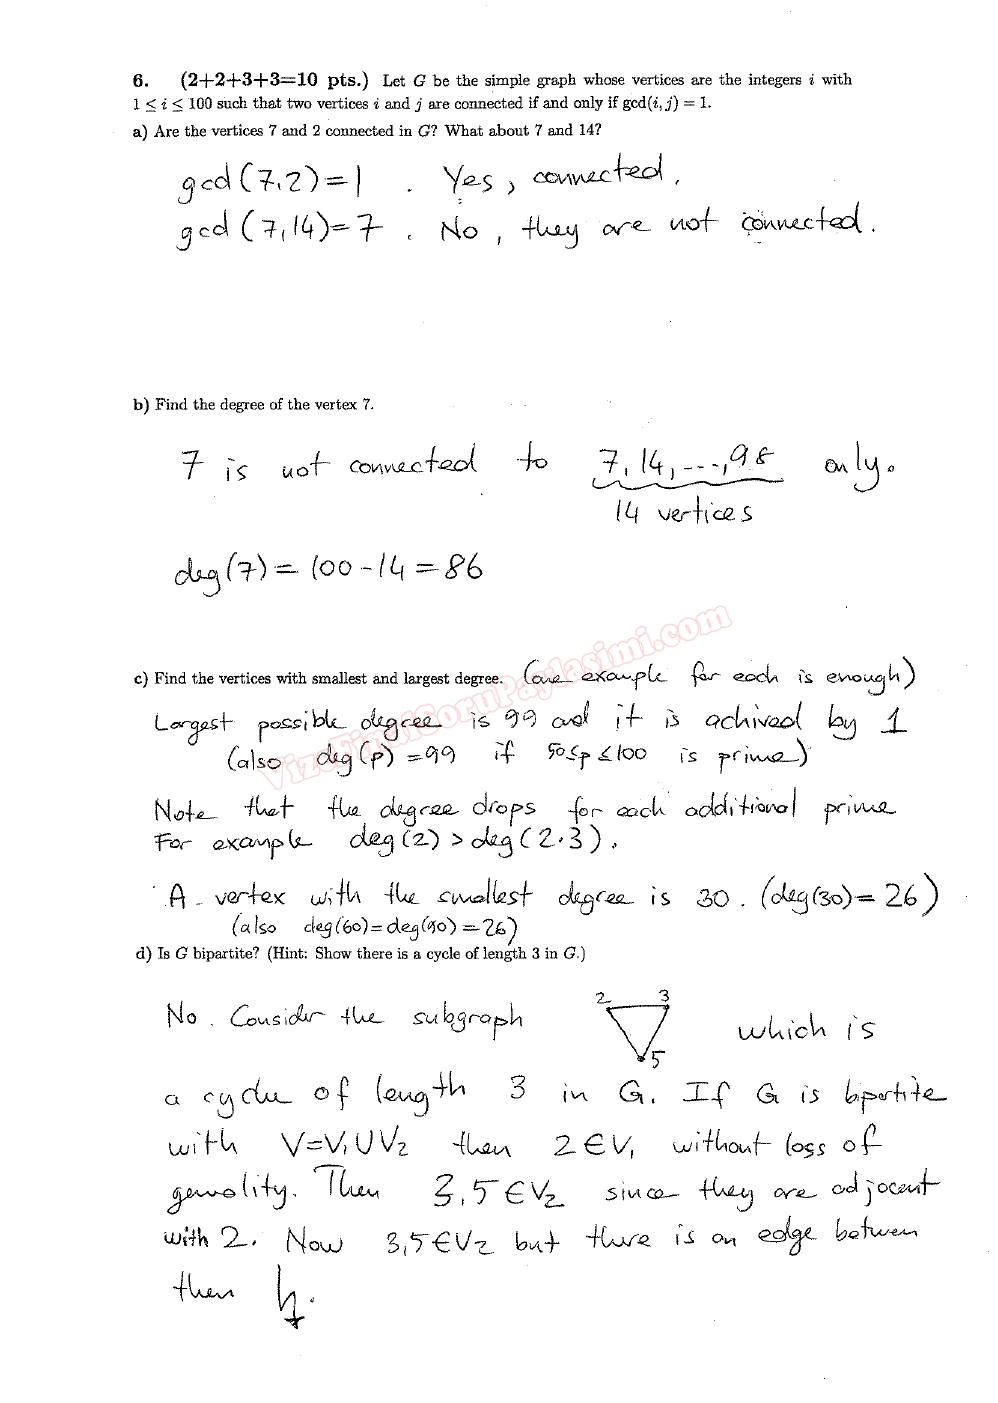 6. (2+2+3+3=10 pts.) Let G be the simple graph whose vertices are the integers i with
1 ≤ i ≤ 100 such that two vertices i and j are connected if and only if gcd(i, j) = 1.
a) Are the vertices 7 and 2 connected in G? What about 7 and 14?
gcd(7,2)=1 . Yes, connected.
gcd(7,14)=7 . No, they are not connected.
b) Find the degree of the vertex 7.
7 is not connected to 7,14,...,98 only.
14 vertices
deg(7) = 100-14 = 86
VizeFinalSoruPaylasimi.com
c) Find the vertices with smallest and largest degree. (one example for each is enough)
Largest possible degree is 99 and it is achived by 1
(also deg(p) =99 if 50≤p≤100 is prime)
Note that the degree drops for each additional prime
For example deg(2) > deg(2·3).
A vertex with the smallest degree is 30. (deg(30)= 26)
(also deg(60)=deg(90)=26)
d) Is G bipartite? (Hint: Show there is a cycle of length 3 in G.)
2 3
No. Consider the subgraph which is
5
a cycle of length 3 in G. If G is bpartite
with V=V₁UV₂ then 2∈V₁ without loss of
genality. Then 3,5∈V₂ since they are adjacent
with 2. Now 3,5∈V₂ but there is an edge between
then